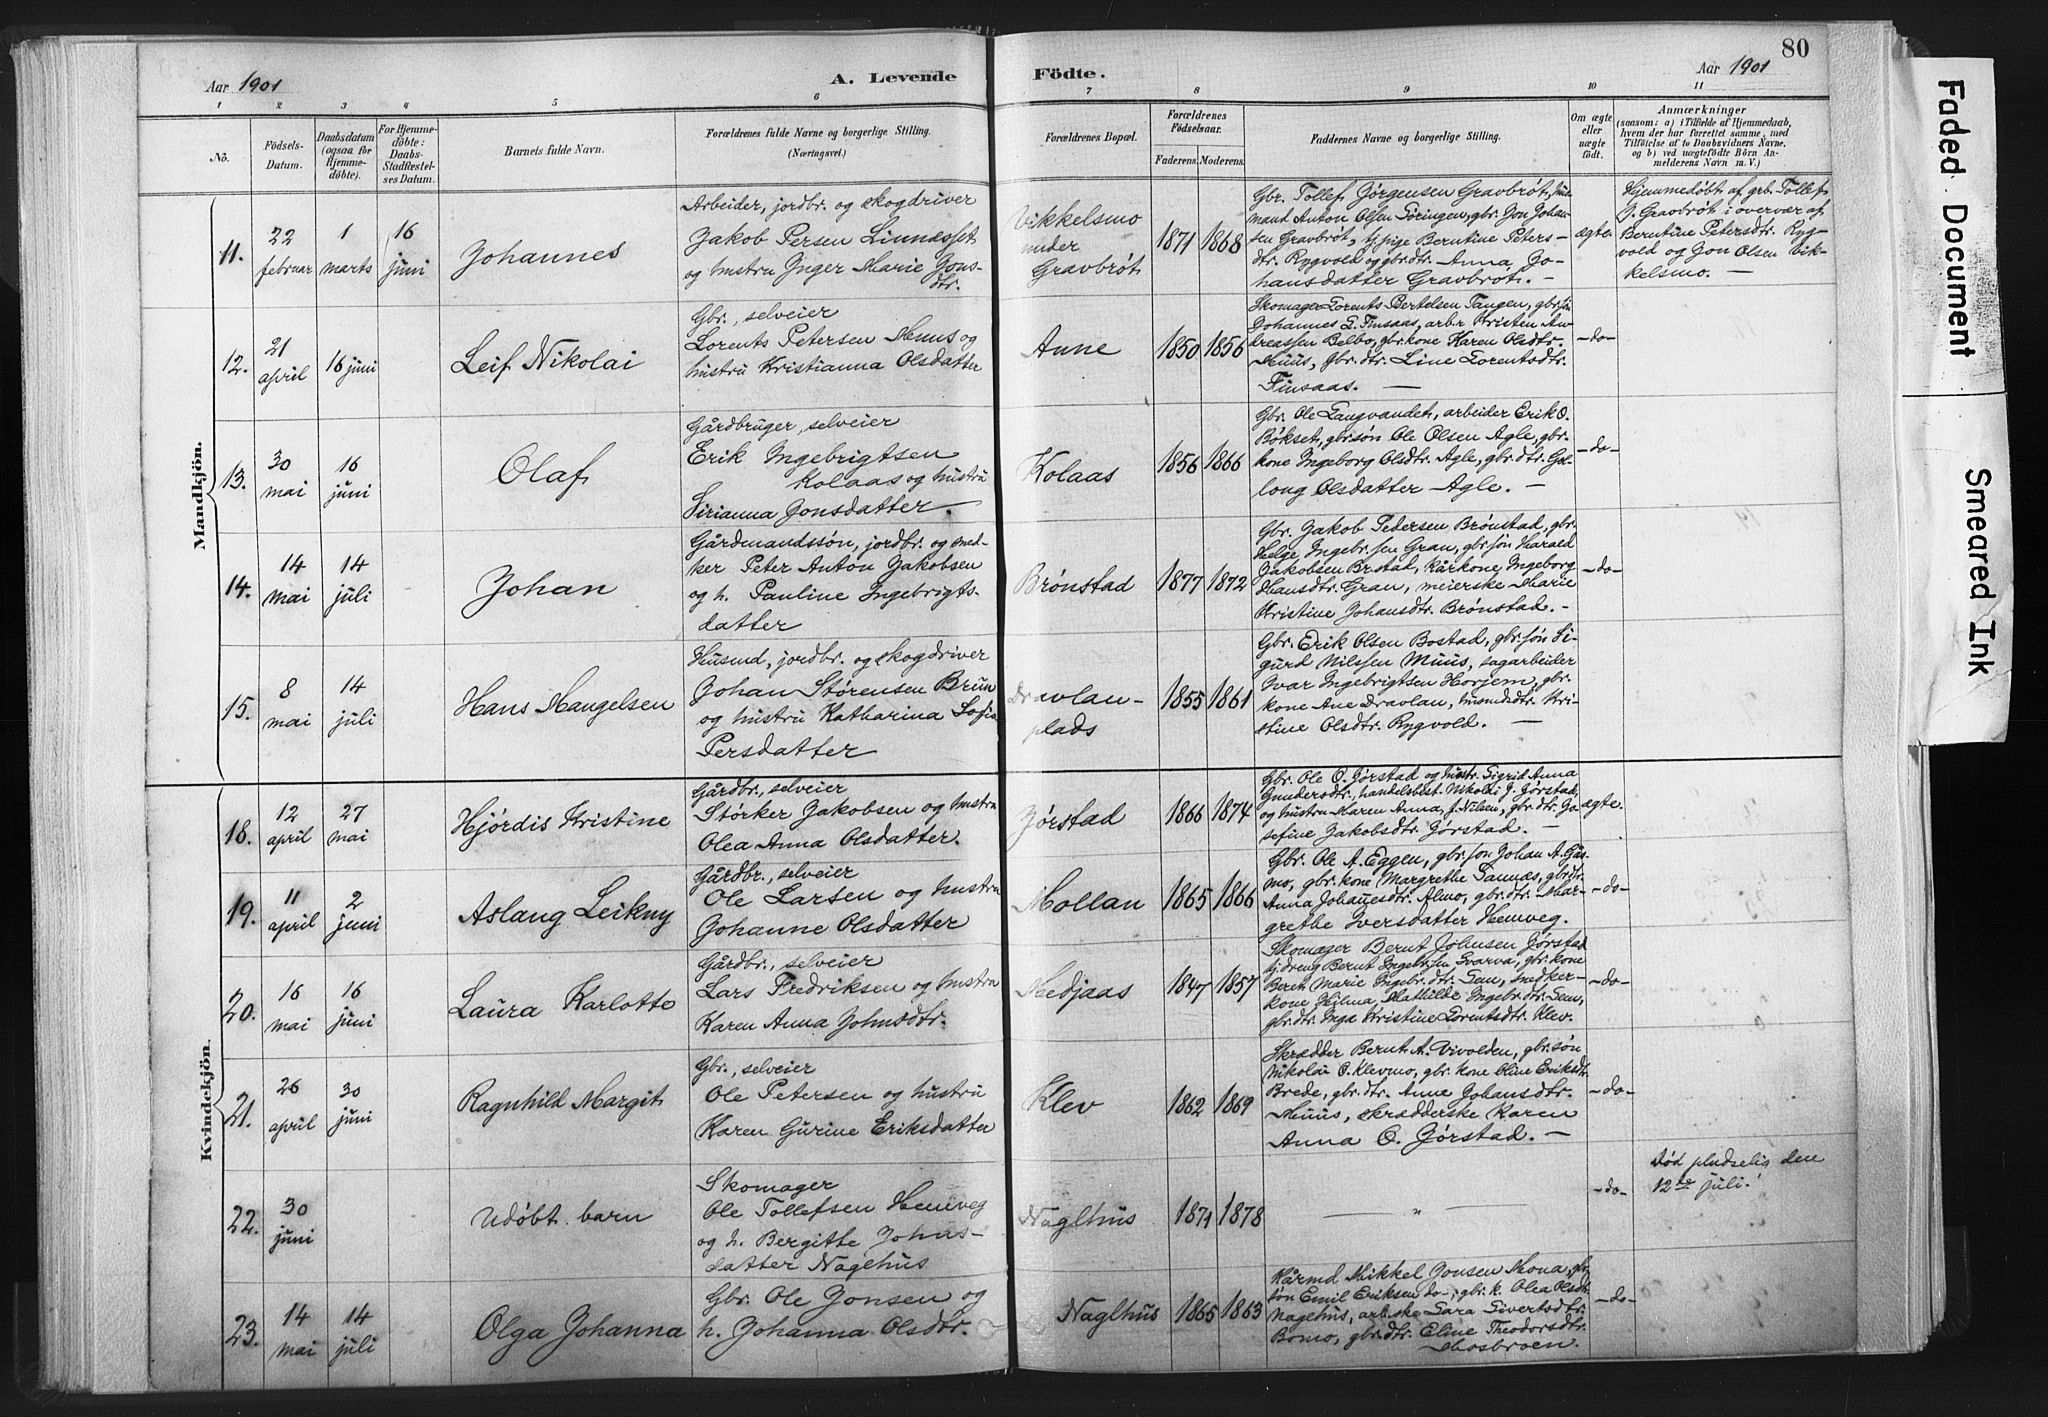 80
Aar 1901
A. Levende
Födte.
Aar 1901
1 2 3 4 5 6 7 8 9 10 11
No.
Födsels-
Datum.
Daabsdatum
(ogsaa for
Hjemme-
döbte).
For Hjemme-
döbte:
Daabs-
Stadfæstel-
ses Datum.
Barnets fulde Navn.
Forældrenes fulde Navne og borgerlige Stilling.
(Næringsvei.)
Forældrenes Bopæl.
Forældrenes
Födselsaar.
Faderens. Moderens.
Faddernes Navne og borgerlige Stilling.
Om ægte
eller
uægte
födt.
Anmærkninger
(saasom: a) i Tilfælde af Hjemmedaab,
hvem der har forrettet samme, med
Tilföielse af to Daabsvidners Navne,
og b) ved uægtefödte Börn An-
melderens Navn m. V.)
Mandkjön.
11.
22
februar
1
marts
16
juni
Johannes
Arbeider, jordbr. og skogdriver
Jakob Persen Linnæsset
og hustru Inger Marie Jons-
dtr.
Vikkelsmo
under
Gravbrøt
1871 1868
Gbr. Tollef Jørgensen Gravbrøt, hus-
mand Anton Olsen Føringen, gbr. Jon Johan-
sen Gravbrøt, tj. pige Berntine Peters-
dtr. Rygvold og gbr. dtr. Anna Jo-
hansdatter Gravbrøt. -
ægte.
Hjemmedøbt af grb. Tollef
J. Gravbrøt i overvær af
Berntine Petersdtr. Ryg-
vold og Jon Olsen Vik-
kelsmo. -
12.
21
april
16 juni
Leif Nikolai
Gbr., selveier
Lorents Petersen Muus og
hustru Kristianna Olsdatter
Aune
1850 1856
Skomager Lorents Bertelsen Tangen, gbr. søn
Johannes L. Finsaas, arb.r Kristen An-
dreassen Belbo, gbr. kone Karen Olsdtr.
Muus, Gbr. dtr. Line Lorentsdtr.
Finsaas. -
- do -
13.
30
mai
16
juni
Olaf
Gårdbruger, selveier
Erik Ingebrigtsen
Kolaas og hustru
Sirianna Jonsdatter. -
Kolaas
1856 1866
Gbr. Ole Langvandet, arbeider Erik O.
Bøkset, gbr. søn Ole Olsen Agle, gbr.
kone Ingeborg Olsdtr. Agle, gbr. dtr. Gol-
long Olsdatter Agle. -
- do -
14.
14
mai
14
juli
Johan
Gårdmandssøn, jordbr. og snед-
ker Peter Anton Jakobsen
og h. Pauline Ingebrigts-
datter
Brønstad
1877 1872
Gbr. Jakob Pedersen Brønstad, gbr.
Helge Ingebr. sen Gran, gbr. søn Harald
Jakobsen Brstad, kårkone Ingeborg
Hansdtr. Gran, meierske Marie
Kristine Johansdtr. Brønstad. -
- do -
15.
8
mai
14
juli
Hans Maugelsen
Husmd, jordbr. og skogdriver
Johan Størensen Bruun
og hustru Katharina Sofia
Persdatter
Dravlan-
plads
1855 1861
Gbr. Erik Olsen Bostad, gbr. søn Si-
gurd Nilssen Muus, sagarbeider
Ivar Ingebrigtsen Horjem, gbr.
kone Ane Dravlan, husmdsdtr. Kri-
stine Olsdtr. Rygvold. -
Kvindekjön.
18.
12
april
27
mai
Hjørdis Kristine
Gårdbr., selveier
Størker Jakobsen og hustru
Olea Anna Olsdatter.
Jørstad
1866 1874
Gbr. Ole O. Jørstad og hustr. Sigrid Anna
Gundersdtr., handelsbest. Nikolai J. Jørstad,
og hustru Maren Anna, f. Nilsen, gbr. dtr. Jo-
sefine Jakobsdtr. Jørstad. -
ægte.
19.
11
april
2
juni
Aslaug Leikny
Gårdbr., selveier
Ole Larsen og hustru
Johanne Olsdatter
Mollan
1865 1866
Gbr. Ole A. Eggen, gbr. søn Johan A. Gås-
mo, gbr. kone Margrethe Sannæs, gbr. dtr.
Anna Johannesdtr. Almo, gbr. dtr. Mar-
grethe Iversdatter Hemveg.
- do -
20.
16
mai
16
juni
Laura Karlotte
Gårdbr., selveier
Lars Fredriksen og hustru
Karen Anna Johnsdtr.
Medjaas
1847 1857
Skomager Bernt Johnsen Jørstad
tj. dreng Bernt Ingebr. sen Svarva, gbr. kone
Beret Marie Ingebr. dtr. Sem, snedker-
kone Hilma Mathilde Ingebr. dtr. Sem,
gbr. dtr. Inga Kristine Lorentsdtr. Klev.
- do -
21.
26
april
30
juni
Ragnhild Margit
Gbr., selveier
Ole Petersen og hustru
Karen Gurine Eriksdatter
Klev
1862 1869
Skrædder Bernt A. Vivolden, gbr. søn
Nikolai O. Klevmo, gbr. kone Oline Eriksdtr.
Brede, gbr. dtr. Anne Johansdtr.
Muus, skrædderske Karen
Anna O. Jørstad. -
- do -
22.
30
juni
Udøbt barn
Skomager
Ole Tollefsen Hemveg
og h. Bergitte Johns-
datter Naglhus
Naglhus
1871 1878
- " -
- do -
Død pludselig den
12te juli.
23.
14
mai
14
juli
Olga Johanna
Gbr. Ole Jonsen og
h. Johanna Olsdtr.
Naglhus
1865 1863
Kårmd Mikkel Jonsen Mona, gbr.
søn Emil Eriksen do -, gbr. k. Olea Olsdtr.
Naglhus, arb.ske Sara Sivertsdtr.
Bomo, gbr. dtr. Eline Theodorsdtr.
Mosbroen.
- do -
Faded Document
Smeared Ink